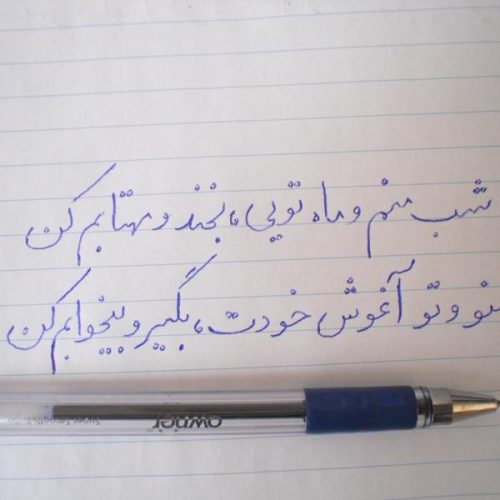 شب منم و ماه تویی، بخند و مهتابم کن
منو و تو آغوش خودت، بگیر و بیخوابم کن
owner
Super Smooth